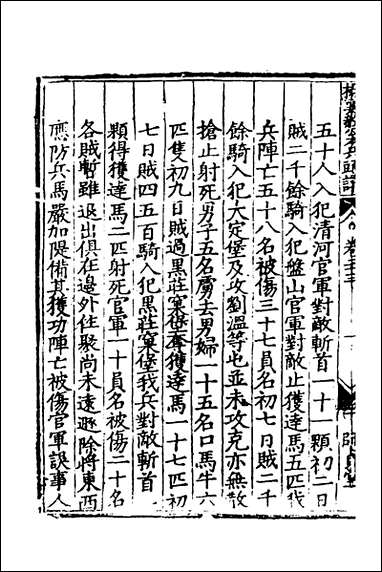 五十人入犯清河官軍對敵斬首一十一顆初二日
賊二千餘騎入犯盤山官軍對敵止獲達馬五匹我
兵陣亡五十八名被傷三十七員名初七日賊二千
餘騎入犯大定堡及攻劉溫等屯並未攻克亦無散
搶止射死男子五名虜去男婦一十五名口馬牛六
匹隻初九日賊過黑莊窠堡奪獲達馬一十七匹初
七日賊四五百騎入犯黑莊窠堡我兵對敵斬首一
顆得獲達馬二匹射死官軍一十員名被傷二十名
各賊暫雖退出俱在邊外住聚尚未遠遯除將東西
應防兵馬嚴加隄備其獲功陣亡被傷官軍誤事人
卷